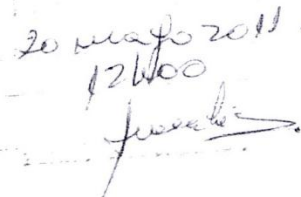 20 março 2011
12h00